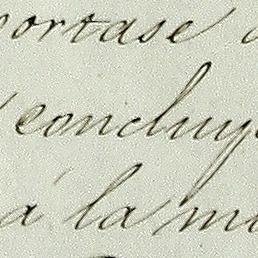 portase
concluy
á la m